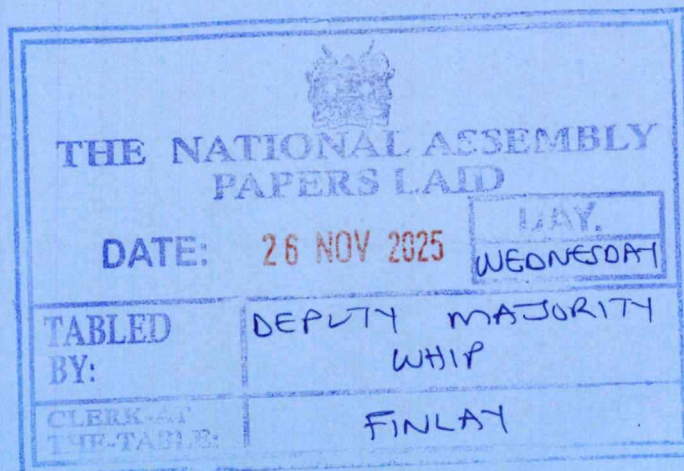 THE NATIONAL ASSEMBLY
PAPERS LAID
DATE: 26 NOV 2025
DAY.
WEDNESDAY
TABLED BY:
DEPUTY MAJORITY WHIP
CLERK-AT THE-TABLE:
FINLAY